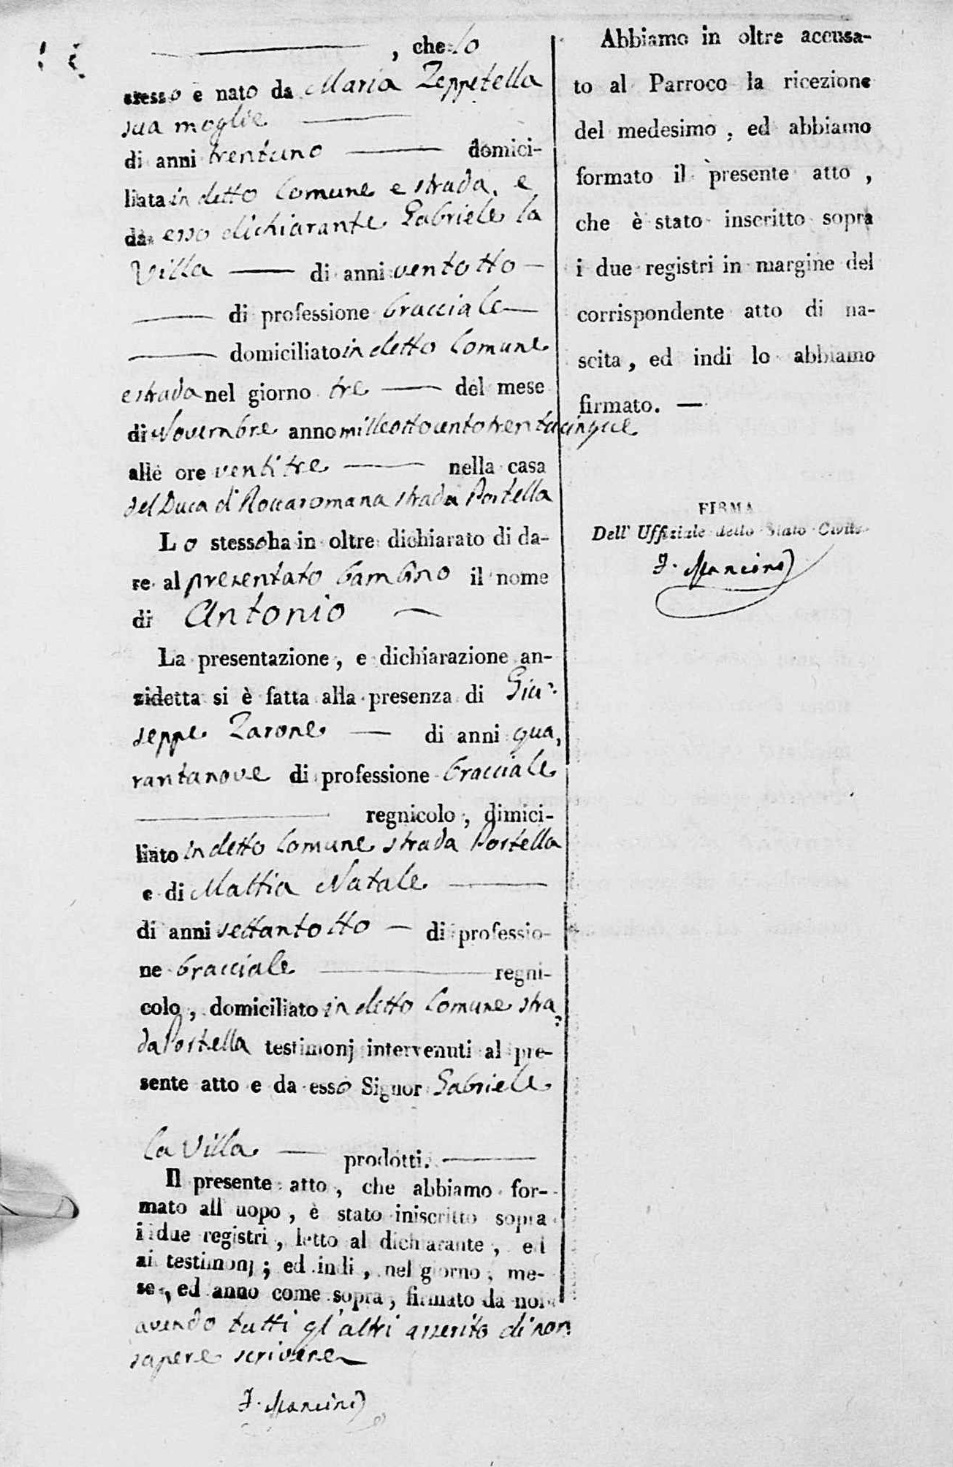 , che lo
stesso è nato da Maria Zeppetella
sua moglie
di anni trentuno domici-
liata in detto Comune e strada, e
da esso dichiarante Gabriele la
Villa di anni ventotto
di professione bracciale
domiciliato in detto Comune
e strada nel giorno tre del mese
di Novembre anno milleottocentotrentacinque
alle ore ventitre nella casa
del Duca di Roccaromana strada Portella
Lo stesso ha in oltre dichiarato di da-
re al presentato bambino il nome
di Antonio
La presentazione, e dichiarazione an-
zidetta si è fatta alla presenza di Giu-
seppe Zarone di anni qua,
rantanove di professione bracciale
regnicolo, dimici-
liato in detto Comune strada Portella
e di Mattia Natale
di anni settantotto di professio-
ne bracciale regni-
colo, domiciliato in detto Comune stra
da Portella testimonj intervenuti al pre-
sente atto e da esso Signor Gabriele
la Villa prodotti.
Il presente atto, che abbiamo for-
mato all'uopo, è stato iniscritto sopra
i due registri, letto al dichiarante, ed
ai testimonj; ed indi, nel giorno, me-
se, ed anno come sopra, firmato da noi
avendo tutti gl'altri asserito di non
sapere scrivere
F. Mancini
Abbiamo in oltre accusa-
to al Parroco la ricezione
del medesimo, ed abbiamo
formato il presente atto,
che è stato inscritto sopra
i due registri in margine del
corrispondente atto di na-
scita, ed indi lo abbiamo
firmato. —
FIRMA
Dell' Uffiziale dello Stato Civile
F. Mancini